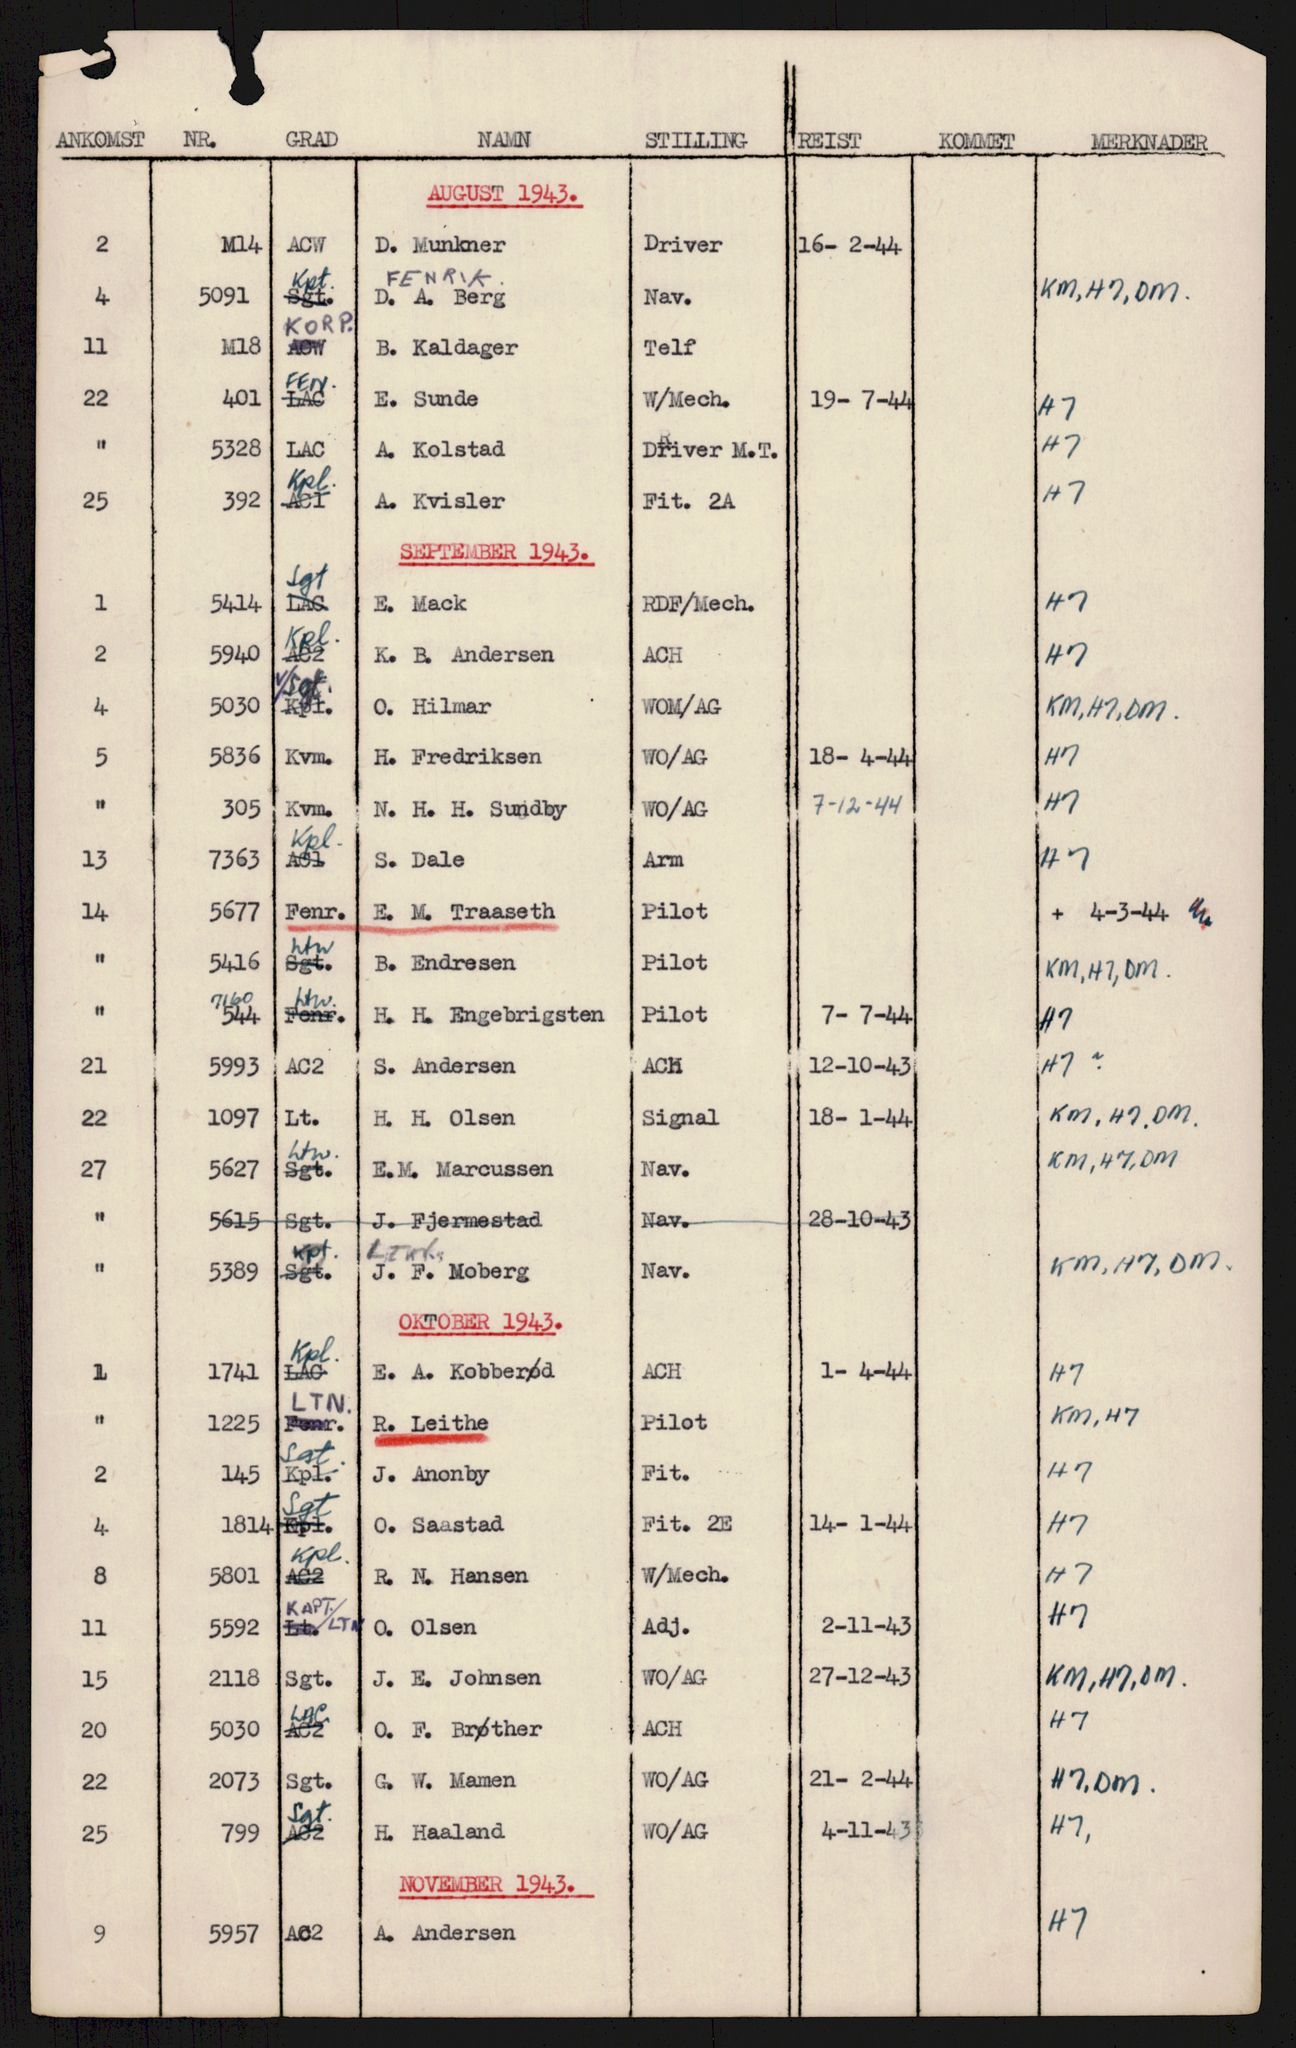 ANKOMST NR. GRAD NAMN STILLING REIST KOMMET MERKNADER
AUGUST 1943.
2 M14 ACW D. Munkner Driver 16- 2-44
Kpt. FENRIK.
4 5091 Sgt. D. A. Berg Nav. KM, H7, DM.
KORP.
11 M18 ACW B. Kaldager Telf
FEN.
22 401 LAC E. Sunde W/Mech. 19- 7-44 H7
" 5328 LAC A. Kolstad Driver M.T. H7
Kpl.
25 392 AC1 A. Kvisler Fit. 2A H7
SEPTEMBER 1943.
Sgt
1 5414 LAC E. Mack RDF/Mech. H7
Kpl.
2 5940 AC2 K. B. Andersen ACH H7
V/Sgt.
4 5030 Kpl. O. Hilmar WOM/AG KM, H7, DM.
5 5836 Kvm. H. Fredriksen WO/AG 18- 4-44 H7
" 305 Kvm. N. H. H. Sundby WO/AG 7-12-44 H7
Kpl.
13 7363 AC1 S. Dale Arm H7
14 5677 Fenr. E. M. Traaseth Pilot + 4-3-44
Ltn
" 5416 Sgt. B. Endresen Pilot KM, H7, DM.
7160 Ltn.
" 544 Fenr. H. H. Engebrigsten Pilot 7- 7-44 H7
21 5993 AC2 S. Andersen ACH 12-10-43 H7 ~
22 1097 Lt. H. H. Olsen Signal 18- 1-44 KM, H7, DM.
Ltn.
27 5627 Sgt. E.M. Marcussen Nav. KM, H7, DM
" 5615 Sgt. J. Fjermestad Nav. 28-10-43
Kpt. LTNT.
" 5389 Sgt. J. F. Moberg Nav. KM, H7, DM.
OKTOBER 1943.
Kpl.
1 1741 LAC E. A. Kobberød ACH 1- 4-44 H7
LTN.
" 1225 Fenr. R. Leithe Pilot KM, H7
Sgt.
2 145 Kpl. J. Anonby Fit. H7
Sgt
4 1814 Kpl. O. Saastad Fit. 2E 14- 1-44 H7
Kpl.
8 5801 AC2 R. N. Hansen W/Mech. H7
KAPT./LTN
11 5592 Lt. O. Olsen Adj. 2-11-43 H7
15 2118 Sgt. J. E. Johnsen WO/AG 27-12-43 KM, H7, DM.
LAC
20 5030 AC2 O. F. Brøther ACH H7
22 2073 Sgt. G. W. Mamen WO/AG 21- 2-44 H7, DM.
Sgt.
25 799 AC2 H. Haaland WO/AG 4-11-43 H7,
NOVEMBER 1943.
9 5957 AC2 A. Andersen H7